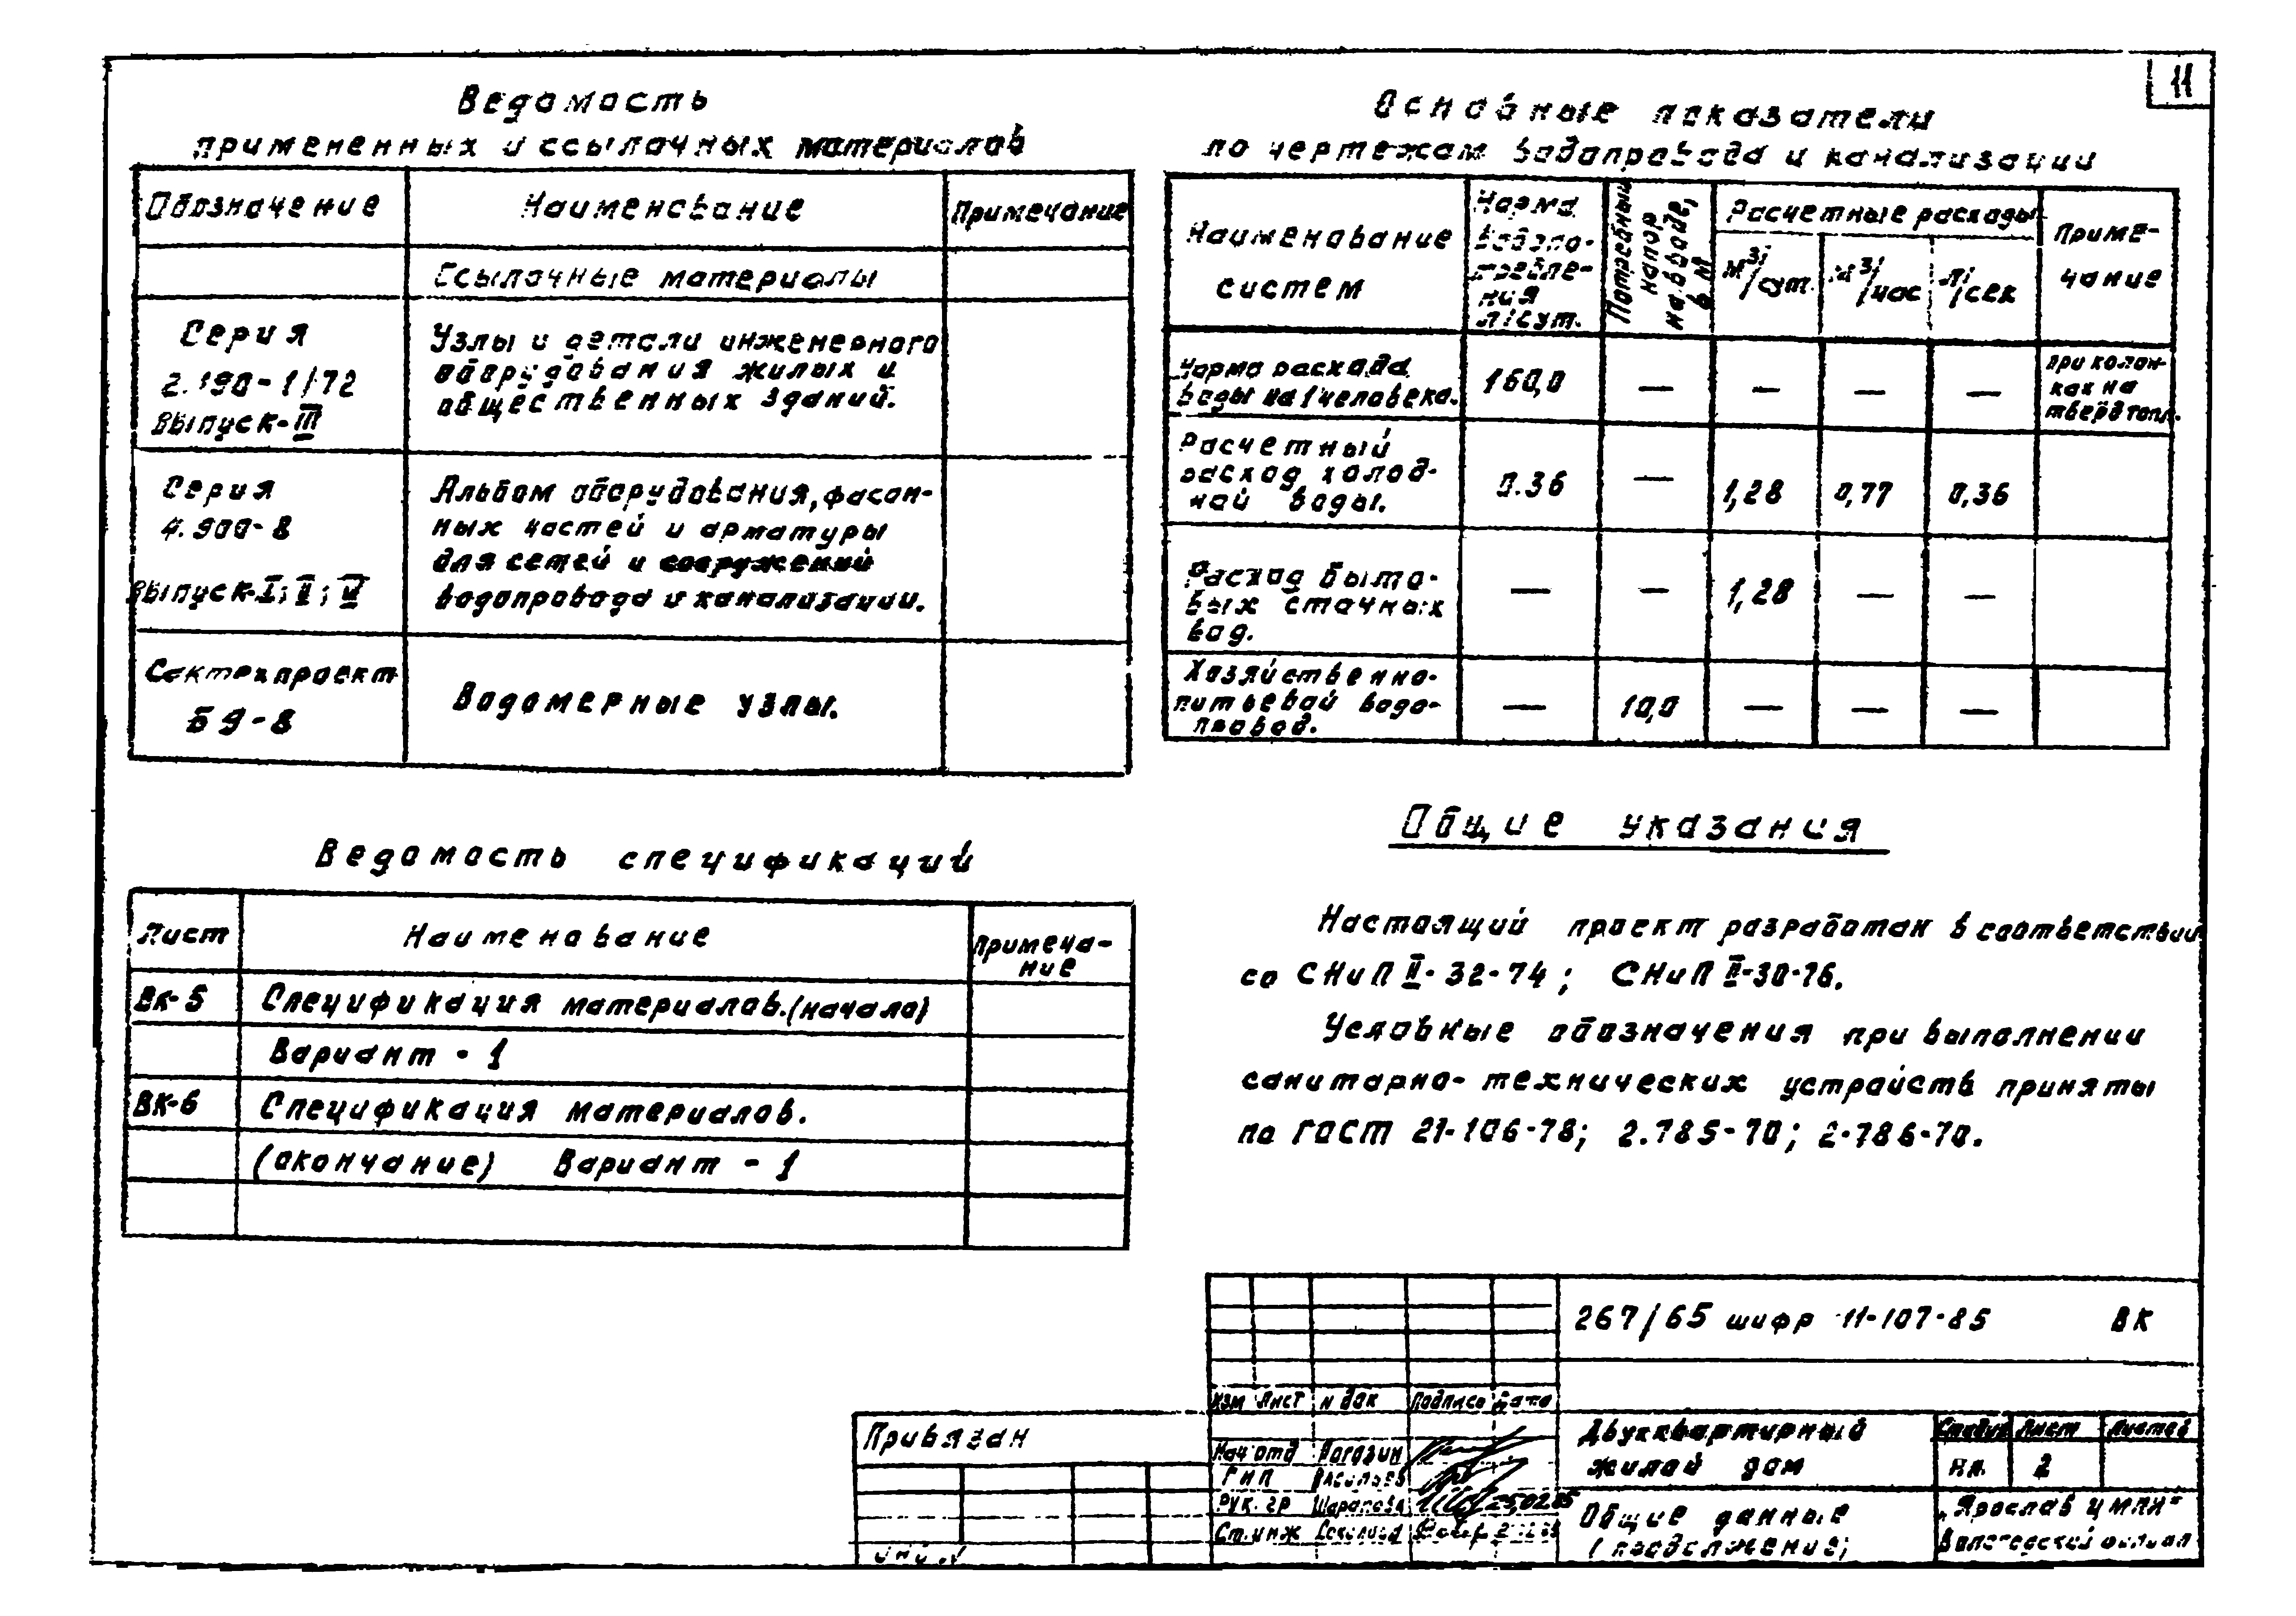 11
Ведомость
примененных и ссылочных материалов
Обозначение Наименование Примечание
Ссылочные материалы
Серия
2.190-1/72
Выпуск-III
Узлы и детали инженерного
оборудования жилых и
общественных зданий.
Серия
4.900-8
Выпуск-I; II; VI
Альбом оборудования, фасон-
ных частей и арматуры
для сетей и сооружений
водопровода и канализации.
Сантехпроект
БЭ-8
Водомерные узлы.
Основные показатели
по чертежам водопровода и канализации
Наименование
систем
Норма
водопо-
требле-
ния
л/сут.
Потребный
напор
на вводе,
в м
Расчетные расходы
м³/сут. м³/час л/сек
Приме-
чание
Норма расхода
воды на 1 человека. 160,0 — — — —
при колон-
ках на
твёрд топл.
Расчетный
расход холод-
ной воды. 0.36 — 1,28 0,77 0,36
Расход быто-
вых сточных
вод. — — 1,28 — —
Хозяйственно-
питьевой водо-
провод. — 10,0 — — —
Ведомость спецификаций
Лист Наименование Примеча-
ние
ВК-5 Спецификация материалов. (начало)
Вариант - 1
ВК-6 Спецификация материалов.
(окончание) Вариант - 1
Общие указания
Настоящий проект разработан в соответствии
со СНиП II-32-74; СНиП II-30-76.
Условные обозначения при выполнении
санитарно-технических устройств приняты
по ГОСТ 21-106-78; 2.785-70; 2.786-70.
267/65 шифр 11-107-85 ВК
Изм Лист N док Подпись Дата
Привязан
Нач отд
ГИП Васильев
Рук. гр Шарапова 25.02.85
Ст. инж
Двухквартирный
жилой дом
Стадия Лист Листов
2
Общие данные
(продолжение)
„Ярославцмпи"
Вологодский филиал
инв. N